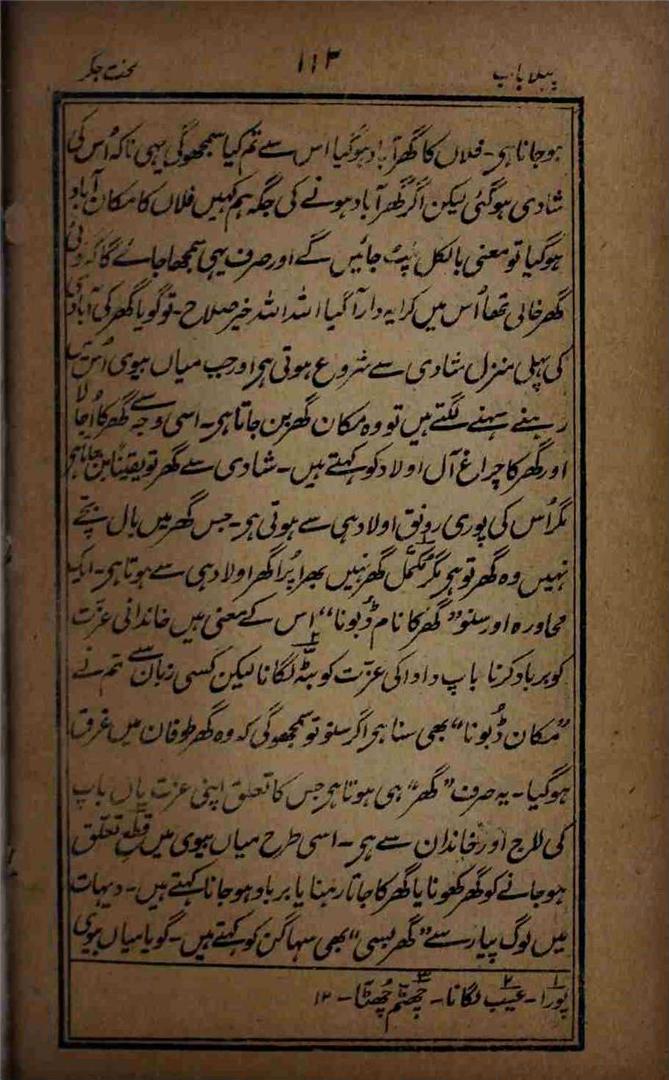 پہلا باب ۱۱۳ لخت جگر
ہوجانا ہی۔ فلاں کا گھر آباد ہوگیا اس سے تم کیا سمجھوگی یہی ناکہ اُس کی
شادی ہوگئی لیکن اگر گھر آباد ہونے کی جگہ ہم کہیں فلاں کا مکان آباد
ہوگیا تو معنی بالکل پٹ جائیں گے اور صرف یہی سمجھا جائے گا کہ کوئی
گھر خالی تھا اُس میں کرایہ دار آگیا اللہ اللہ خیر صلاح۔ تو گویا گھر کی آبادی
کی پہلی منزل شادی سے شروع ہوتی ہی اور جب میاں بیوی اُس میں
رہنے سہنے لگتے ہیں تو وہ مکان گھر بن جاتا ہی۔ اسی وجہ سے گھر کا اُجالا
اور گھر کا چراغ آل اولاد کو کہتے ہیں۔ شادی سے گھر تو یقیناً بن جاتا ہی
مگر اُس کی پوری رونق اولاد ہی سے ہوتی ہی۔ جس گھر میں بال بچے
نہیں وہ گھر تو ہی مگر مکمل۱ گھر نہیں بھرا پُرا گھر اولاد ہی سے ہوتا ہی۔ ایک
محاورہ اور سنو "گھر کا نام ڈبونا" اس کے معنی ہیں خاندانی عزت
کو برباد کرنا باپ دادا کی عزت کو بٹہ۲ لگانا لیکن کسی زبان سے تم نے
"مکان ڈبونا" بھی سنا ہی اگر سنو تو سمجھوگی کہ وہ گھر طوفان میں غرق
ہوگیا۔ یہ صرف "گھر" ہی ہوتا ہی جس کا تعلق اپنی عزت ماں باپ
کی لاج اور خاندان سے ہی۔ اسی طرح میاں بیوی میں قطع۳ تعلق
ہوجانے کو گھر کھونا یا گھر کا جاتا رہنا یا برباد ہوجانا کہتے ہیں۔ دیہات
میں لوگ پیار سے "گھر بسی" بھی سہاگن کو کہتے ہیں۔ گویا میاں بیوی
۱ پورا۔ ۲ عیب لگانا۔ ۳ چھٹم چھٹا۔ ۱۲